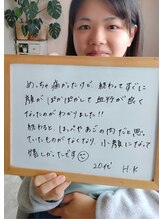 めっちゃ痛かったけど 終わってすぐに
顔がぽかぽかして 血行が良く
なったのがわかりました!!
終わると ほっぺやあごの肉だと思っ
ていたものがなくなり 小顔になって
嬉しかったです
20代 H K